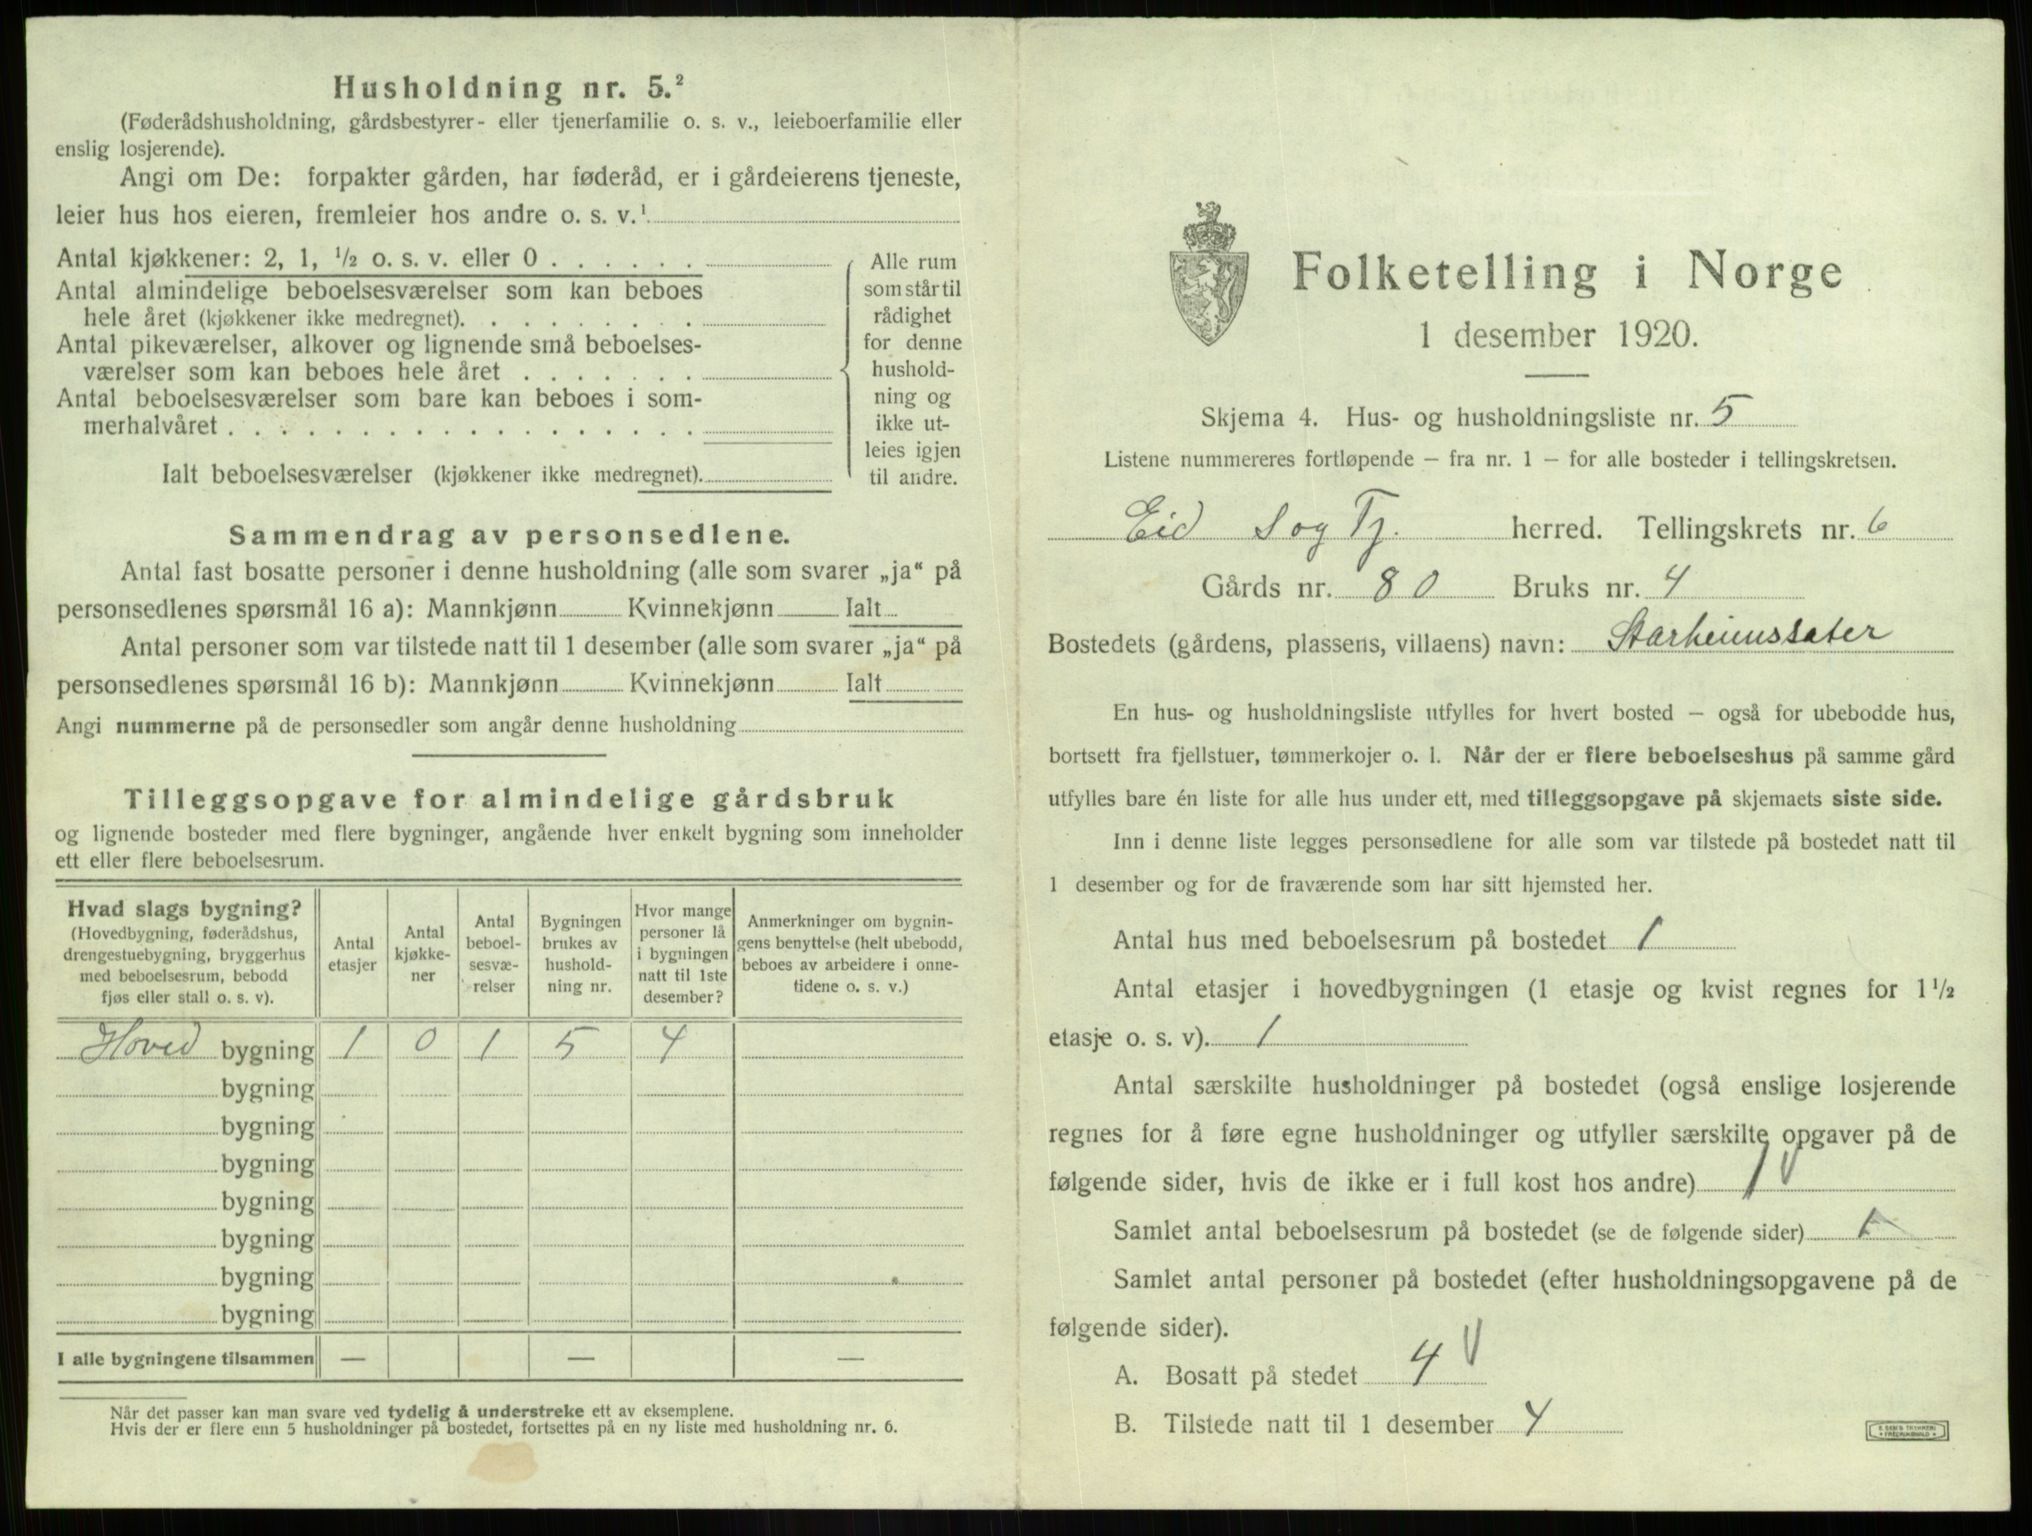 Husholdning nr. 5.²
(Føderådshusholdning, gårdsbestyrer- eller tjenerfamilie o. s. v., leieboerfamilie eller
enslig losjerende).
Angi om De: forpakter gården, har føderåd, er i gårdeierens tjeneste,
leier hus hos eieren, fremleier hos andre o. s. v.¹
Antal kjøkkener: 2, 1, ½ o. s. v. eller 0 . . . . . .
Antal almindelige beboelsesværelser som kan beboes
hele året (kjøkkener ikke medregnet). . . . . . . . .
Antal pikeværelser, alkover og lignende små beboelses-
værelser som kan beboes hele året . . . . . . .
Antal beboelsesværelser som bare kan beboes i som-
merhalvåret . . . . . . . . . . . . . . . . . .
Ialt beboelsesværelser (kjøkkener ikke medregnet).
Alle rum
som står til
rådighet
for denne
hushold-
ning og
ikke ut-
leies igjen
til andre.
Sammendrag av personsedlene.
Antal fast bosatte personer i denne husholdning (alle som svarer „ja“ på
personsedlenes spørsmål 16 a): Mannkjønn Kvinnekjønn Ialt
Antal personer som var tilstede natt til 1 desember (alle som svarer „ja“ på
personsedlenes spørsmål 16 b): Mannkjønn Kvinnekjønn Ialt
Angi nummerne på de personsedler som angår denne husholdning
Tilleggsopgave for almindelige gårdsbruk
og lignende bosteder med flere bygninger, angående hver enkelt bygning som inneholder
ett eller flere beboelsesrum.
Hvad slags bygning?
(Hovedbygning, føderådshus,
drengestuebygning, bryggerhus
med beboelsesrum, bebodd
fjøs eller stall o. s. v).
Antal
etasjer
Antal
kjøkke-
ner
Antal
beboel-
sesvæ-
relser
Bygningen
brukes av
hushold-
ning nr.
Hvor mange
personer lå
i bygningen
natt til 1ste
desember?
Anmerkninger om bygnin-
gens benyttelse (helt ubebodd,
beboes av arbeidere i onne-
tidene o. s. v.)
Hoved bygning 1 0 1 5 4
bygning
bygning
bygning
bygning
bygning
bygning
bygning
I alle bygningene tilsammen — — —
Når det passer kan man svare ved tydelig å understreke ett av eksemplene.
Hvis der er flere enn 5 husholdninger på bostedet, fortsettes på en ny liste med husholdning nr. 6.
Folketelling i Norge
1 desember 1920.
Skjema 4. Hus- og husholdningsliste nr. 5
Listene nummereres fortløpende — fra nr. 1 — for alle bosteder i tellingskretsen.
Eid Sogn Fj. herred. Tellingskrets nr. 6
Gårds nr. 80 Bruks nr. 4
Bostedets (gårdens, plassens, villaens) navn: Starheimssæter
En hus- og husholdningsliste utfylles for hvert bosted — også for ubebodde hus,
bortsett fra fjellstuer, tømmerkojer o. l. Når der er flere beboelseshus på samme gård
utfylles bare én liste for alle hus under ett, med tilleggsopgave på skjemaets siste side.
Inn i denne liste legges personsedlene for alle som var tilstede på bostedet natt til
1 desember og for de fraværende som har sitt hjemsted her.
Antal hus med beboelsesrum på bostedet 1
Antal etasjer i hovedbygningen (1 etasje og kvist regnes for 1½
etasje o. s. v). 1
Antal særskilte husholdninger på bostedet (også enslige losjerende
regnes for å føre egne husholdninger og utfyller særskilte opgaver på de
følgende sider, hvis de ikke er i full kost hos andre) 1 V
Samlet antal beboelsesrum på bostedet (se de følgende sider) 1
Samlet antal personer på bostedet (efter husholdningsopgavene på de
følgende sider).
A. Bosatt på stedet 4 V
B. Tilstede natt til 1 desember 4